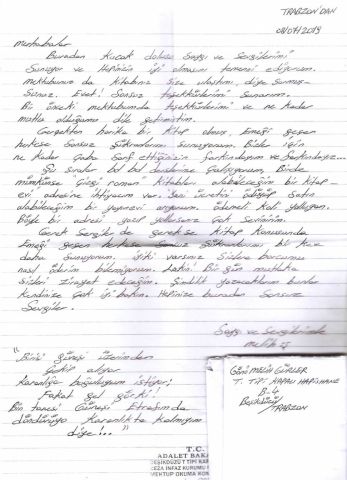 TRABZON'DAN
04/07/2019
merhabalar
Buradan Kucak dolusu Saygı ve Sevgilerimi
Sunuyor ve Hepinizin iyi olmasını temenni ediyorum.
mektubunuz da kitabınız Size ulaştımı, diye Sormuş-
Sunuz. Evet! Sonsuz teşekkürlerimi Sunarım.
Bir önceki mektubumda teşekkürlerimi ve ne kadar
mutlu olduğumu dile getirmiştim.
Gerçekten harika bir kitap olmuş. Emeği geçen
herkese Sonsuz Şükranlarımı sunuyorum. Bizler için
ne kadar çaba Sarf ettiğinizin farkındayım
Şu sıralar bol bol derslerime çalışıyorum, Birde
mümkünse Çizgi roman Kitabları alabileceğim bir kitap-
evi adresine ihtiyacım var.
alabileceğim bir yayınevi arıyorum
Böyle bir adresi yollarsanız Çok Sevinirim.
Gerek Sergide gerekse kitap Konusunda
Emeği geçen herkese Sonsuz Şükranlarımı bir kez
daha Sunuyorum. iyiki varsınız Sizlere borcumu
nasıl öderim bilemiyorum. Lakin! Bir gün mutlaka
Sizleri ziyaret edeceğim. Şimdilik yazacaklarım bunlar
Kendinize Çok iyi bakın. Hepinize buradan Sonsuz
Sevgiler.
Saygı ve Sevgilerimle
"Birisi Güneşi üzerimden
Çekip alıyor
Karanlığa boğuluyum istiyor!
Fakat gel gör ki!
Bin tanesi Güneşi Etrafımda
döndürüyor Karanlıkta Kalmıyım
diye!..."
T. TİPİ KAPALI HAPİSHANE
B-4
Beşikdüzü
TRABZON
T.C.
ADALET BAKA
BEŞİKDÜZÜ T TİPİ KAPA
CEZA İNFAZ KURUMU
MEKTUP OKUMA KOM